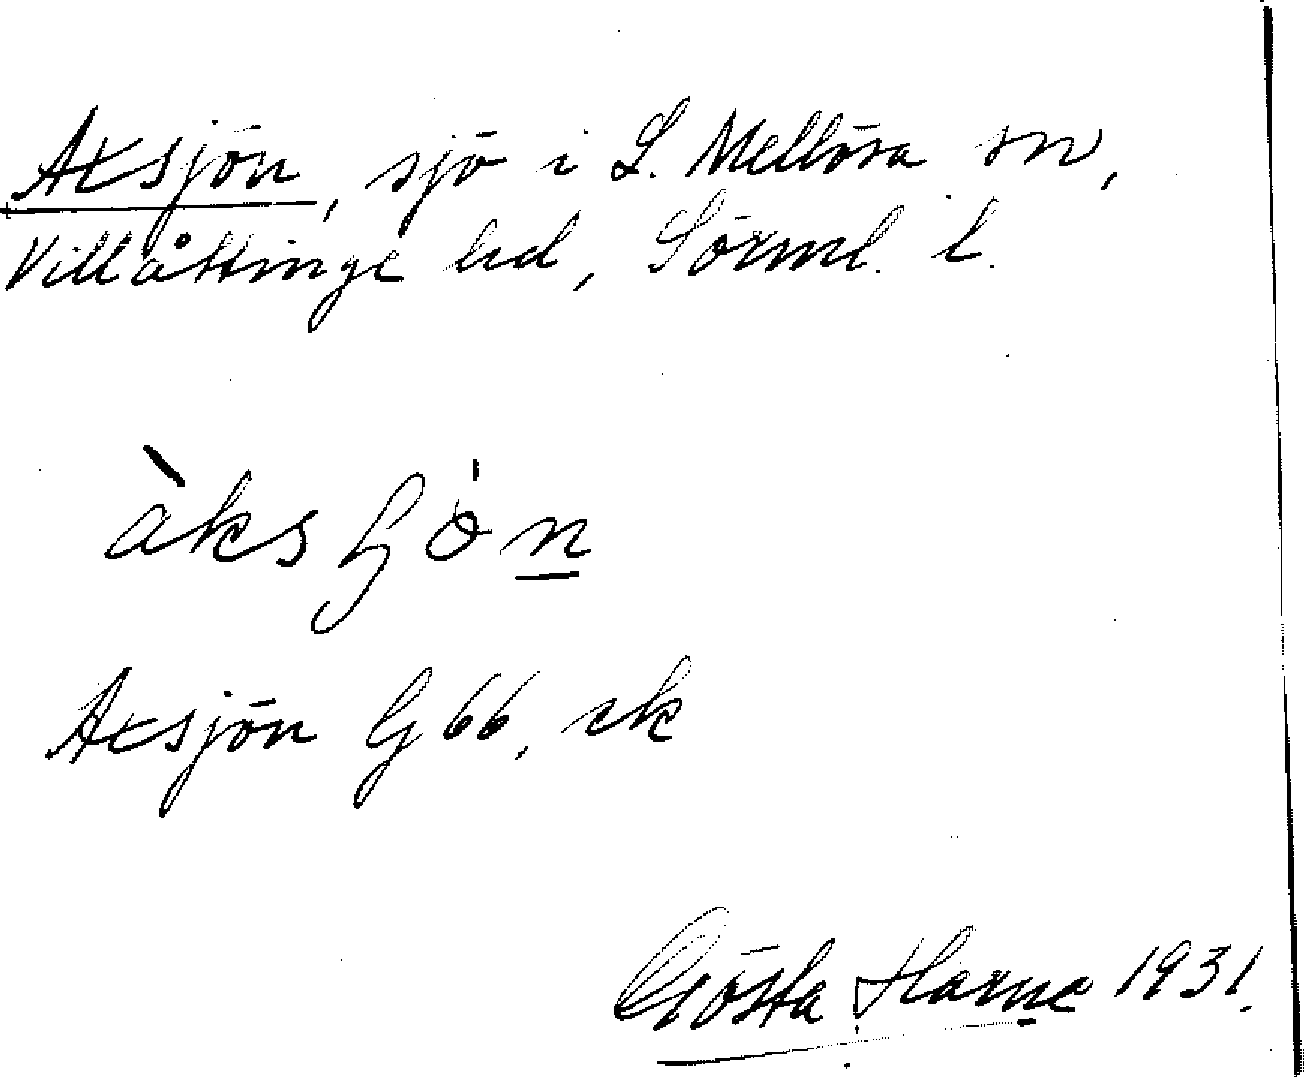 Axsjön, sjö i L. Mellösa sn,
Villåttinge hd, Sörml. l.
Axsjön G 66, sk
Gösta Harne 1931.